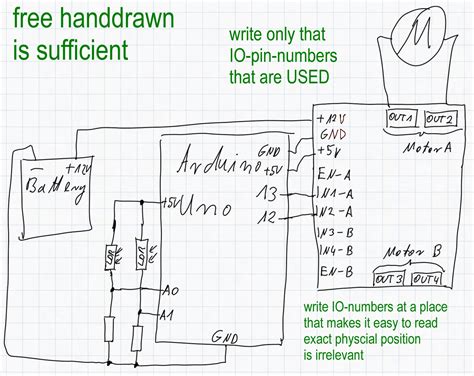 free handdrawn
is sufficient
write only that
IO-pin-numbers
that are USED
M
+12V
GND
+5V
EN-A
IN1-A
IN2-A
IN3-B
IN4-B
EN-B
OUT1
OUT2
Motor A
Motor B
OUT3
OUT4
− +12V
Battery
Arduino
Uno
GND
+5V
13
12
+5V
LDR
LDR
A0
A1
GND
write IO-numbers at a place
that makes it easy to read
exact physcial position
is irrelevant